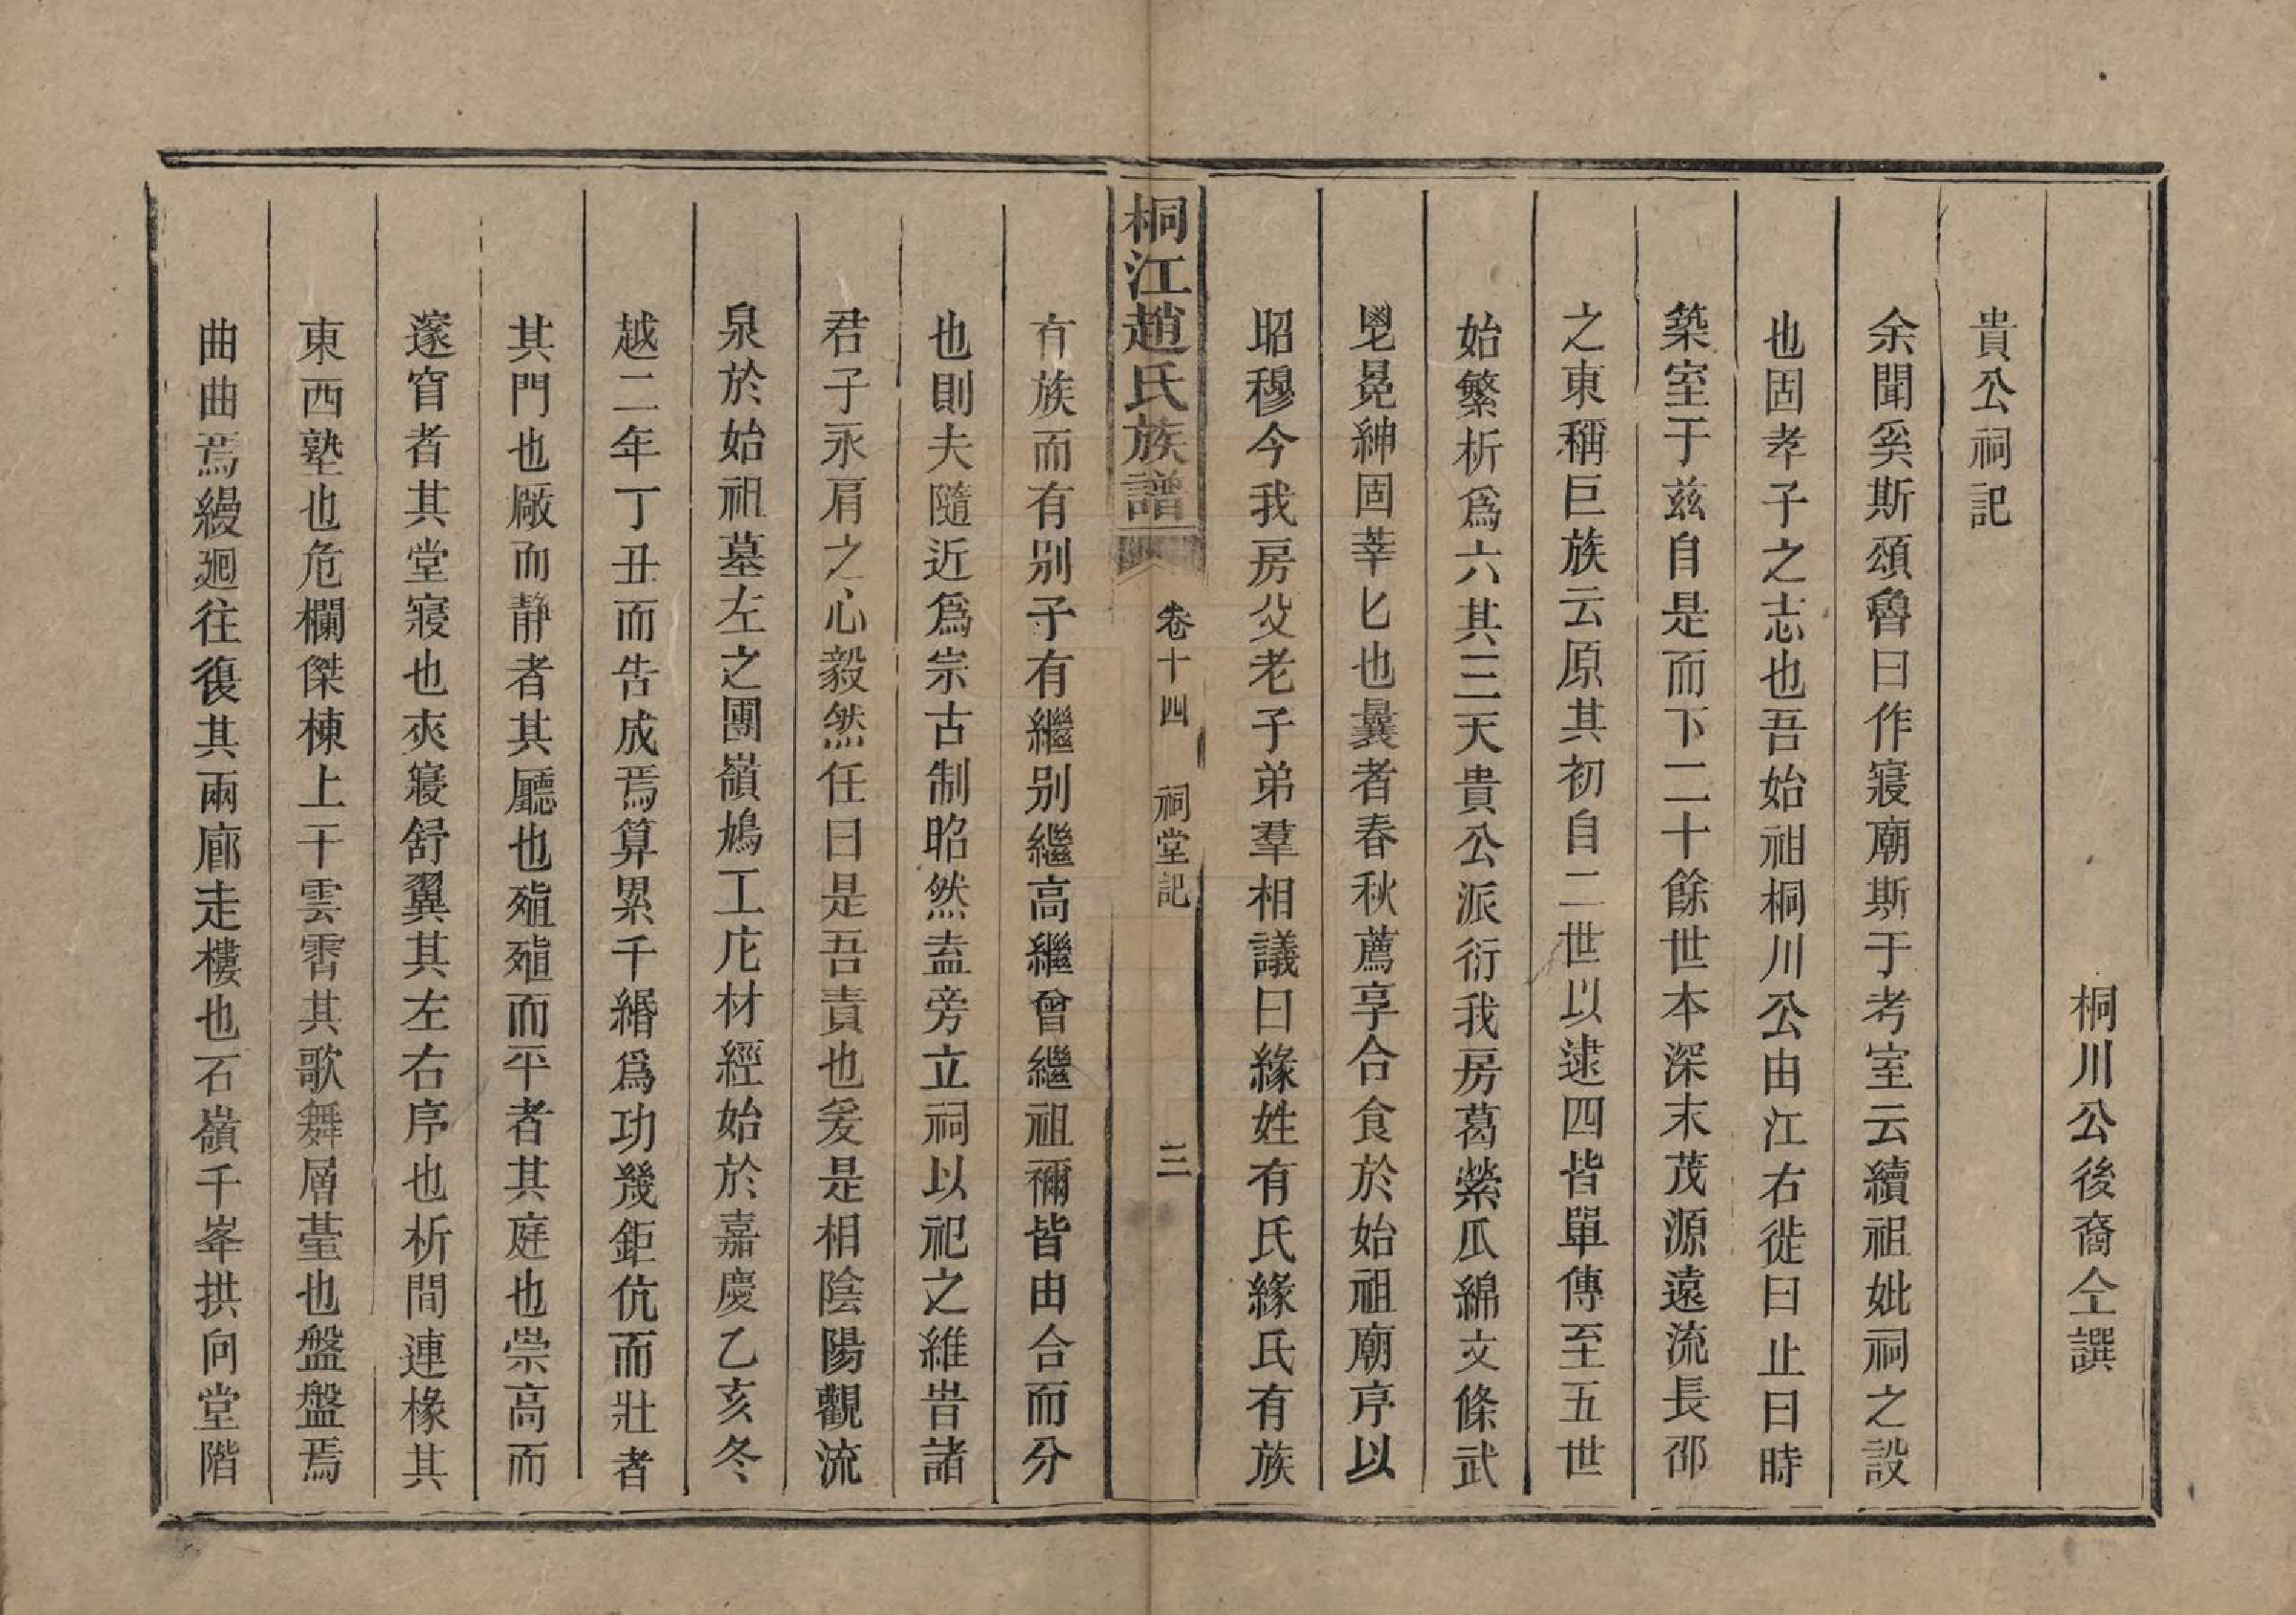 桐川公後裔仝譔
貴公祠記
余聞奚斯頌魯曰作寢廟斯于考室云續祖妣祠之設
也固孝子之志也吾始祖桐川公由江右徙曰止曰時
築室于茲自是而下二十餘世本深末茂源遠流長邵
之東稱巨族云原其初自二世以逮四皆單傳至五世
始繁析爲六其三天貴公派衍我房葛縈瓜綿文條武
鬯冕紳固莘匕也曩者春秋薦享合食於始祖廟序以
昭穆今我房父老子弟羣相議曰緣姓有氏緣氏有族
桐江趙氏族譜 卷十四 祠堂記 三
有族而有别子有繼别繼高繼曾繼祖禰皆由合而分
也則夫隨近爲宗古制昭然盍旁立祠以祀之維旹諸
君子永肩之心毅然任曰是吾責也爰是相陰陽觀流
泉於始祖墓左之團嶺鳩工庀材經始於嘉慶乙亥冬
越二年丁丑而告成焉算累千緡爲功幾鉅伉而壯者
其門也厰而靜者其廳也殖殖而平者其庭也崇高而
邃窅者其堂寢也夾寢舒翼其左右序也析間連椽其
東西塾也危欄傑棟上干雲霄其歌舞層䑓也盤盤焉
曲曲焉縵廻往復其兩廊走樓也石嶺千峯拱向堂階